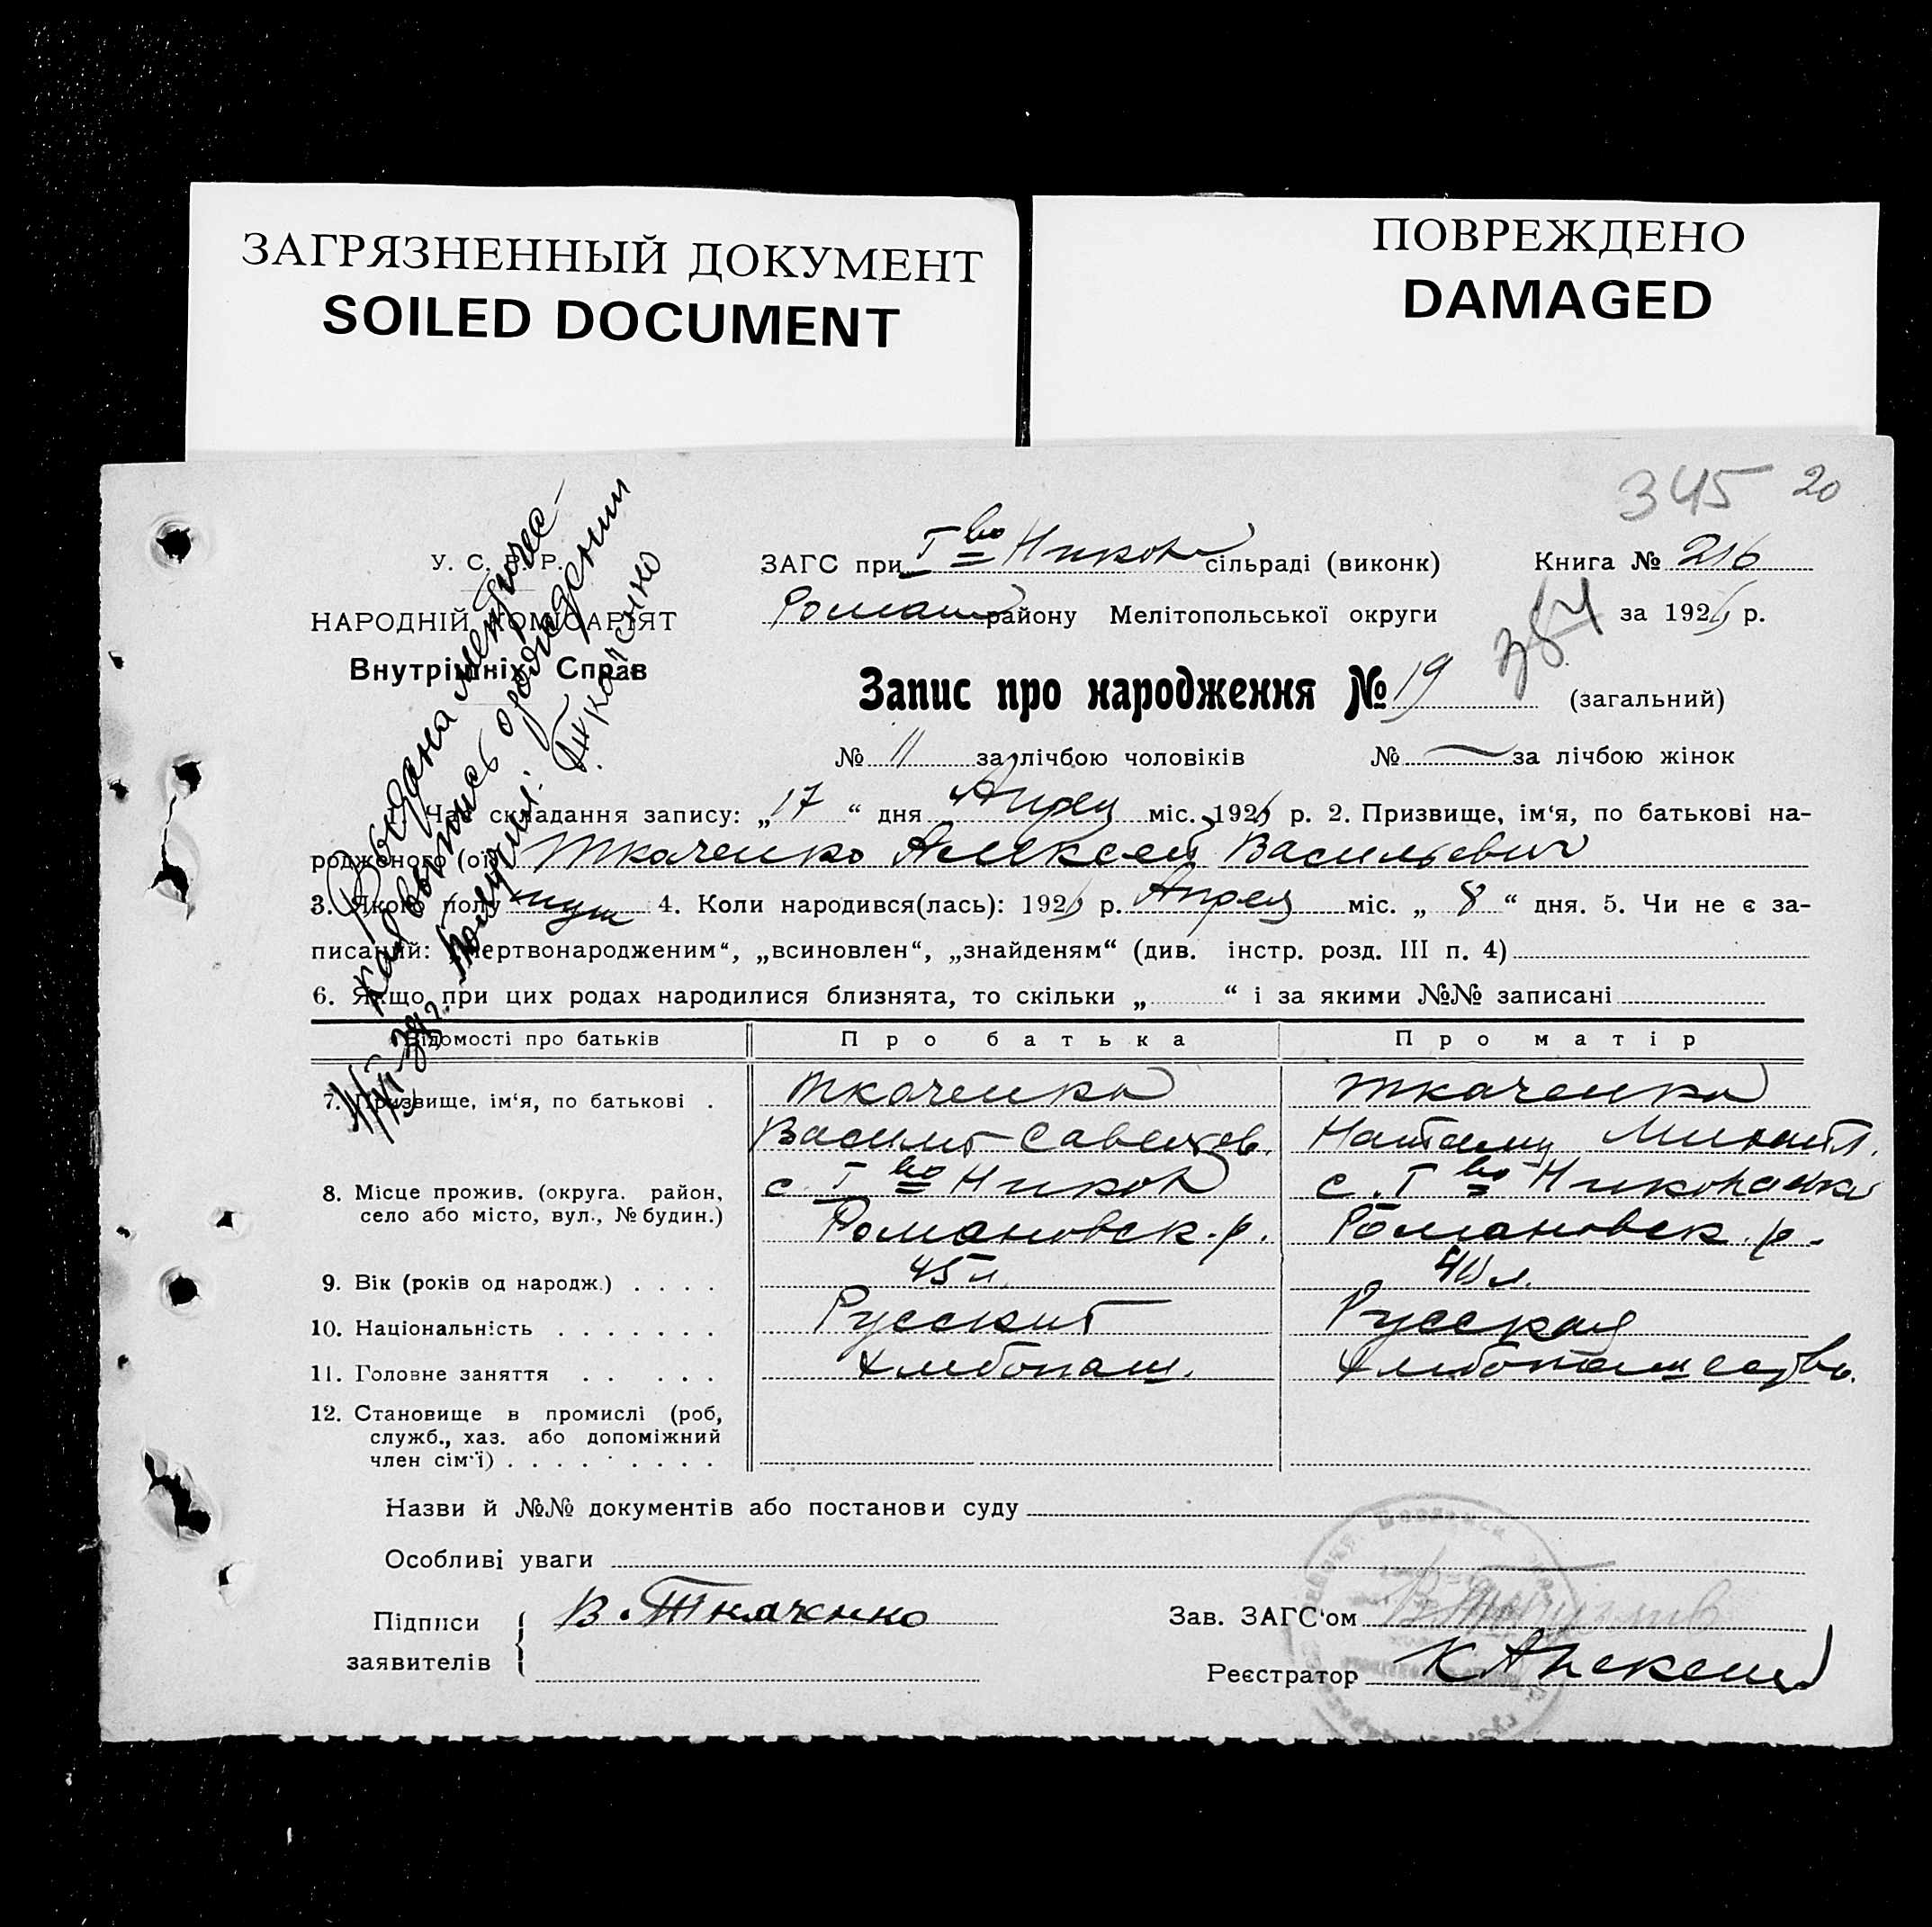 ЗАГРЯЗНЕННЫЙ ДОКУМЕНТ
SOILED DOCUMENT
ПОВРЕЖДЕНО
DAMAGED
345 20
У. С. Р. Р.
НАРОДНІЙ КОМІСАРІЯТ
Внутрішніх Справ
ЗАГС при Iво Никол сільраді (виконк) Книга № 216
Роман району Мелітопольської округи за 192 р.
384
Запис про народження № 19 (загальний)
№ 11 за лічбою чоловіків № — за лічбою жінок
Выдана метричес-
кая выпись о рождении
Получил: Ткаченко
1. Час складання запису: „17“ дня Апрел міс. 192 р. 2. Призвище, ім‘я, по батькові на-
родженого (ої) Ткаченко Алексей Васильевич
3. Якого полу муж 4. Коли народився(лась): 192 р. Апрел міс. „8“ дня. 5. Чи не є за-
писаний: „мертвонародженим“, „всиновлен“, „знайденям“ (див. інстр. розд. III п. 4)
6. Якщо при цих родах народилися близнята, то скільки „ “ і за якими №№ записані
Відомості про батьків Про батька Про матір
7. Призвище, ім‘я, по батькові . Ткаченко Ткаченко
Василий Савельев. Наталия Михайл.
8. Місце прожив. (округа. район, с. Iво Никол с. Iво Николаевка
село або місто, вул., № будин.) Романовск. р. Романовск. р.
9. Вік (років од народж.) . . . . 45 л. 40 л.
10. Національність . . . . . . . Русский Русская
11. Головне заняття . . . . . Хлебопаш. Хлебопашество.
12. Становище в промислі (роб,
служб., хаз. або допоміжний
член сім‘ї) . . . . . . . . .
Назви й №№ документів або постанови суду
Особливі уваги
Підписи
заявителів
В. Ткаченко
Зав. ЗАГС‘ом
Реєстратор К Алексеев